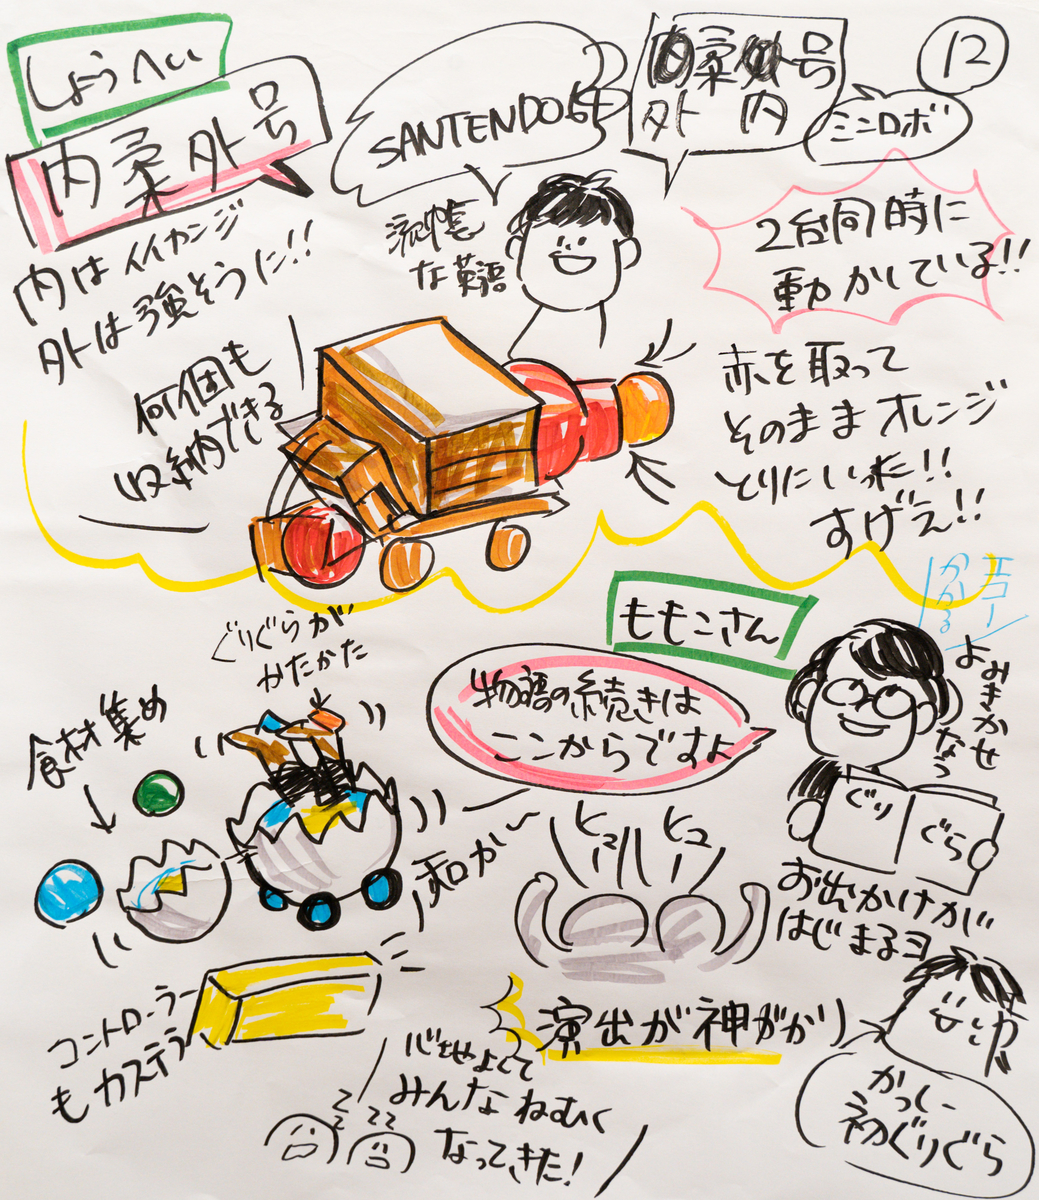 しょうへい
内柔外号
内はイイカンジ
外は強そうに!!
何個も
収納できる
SANTENDO64
流暢
な英語
柔 号
外 内
12
ミニロボ
2台同時に
動かしている!!
赤を取って
そのままオレンジ
とりにいった!!
すげえ!!
エコー
かかる
ももこさん
物語の続きは
ここからですよ
よみきかせ
なう
ぐり
ぐら
お出かけが
はじまるヨ
ぐりぐらが
かたかた
食材集め
コントローラー
もカステラ
ヒュー
ヒュー
演出が神がかり
心地よくて
みんなねむく
なってきた!
zz
zzz
かっしー
初ぐりぐら